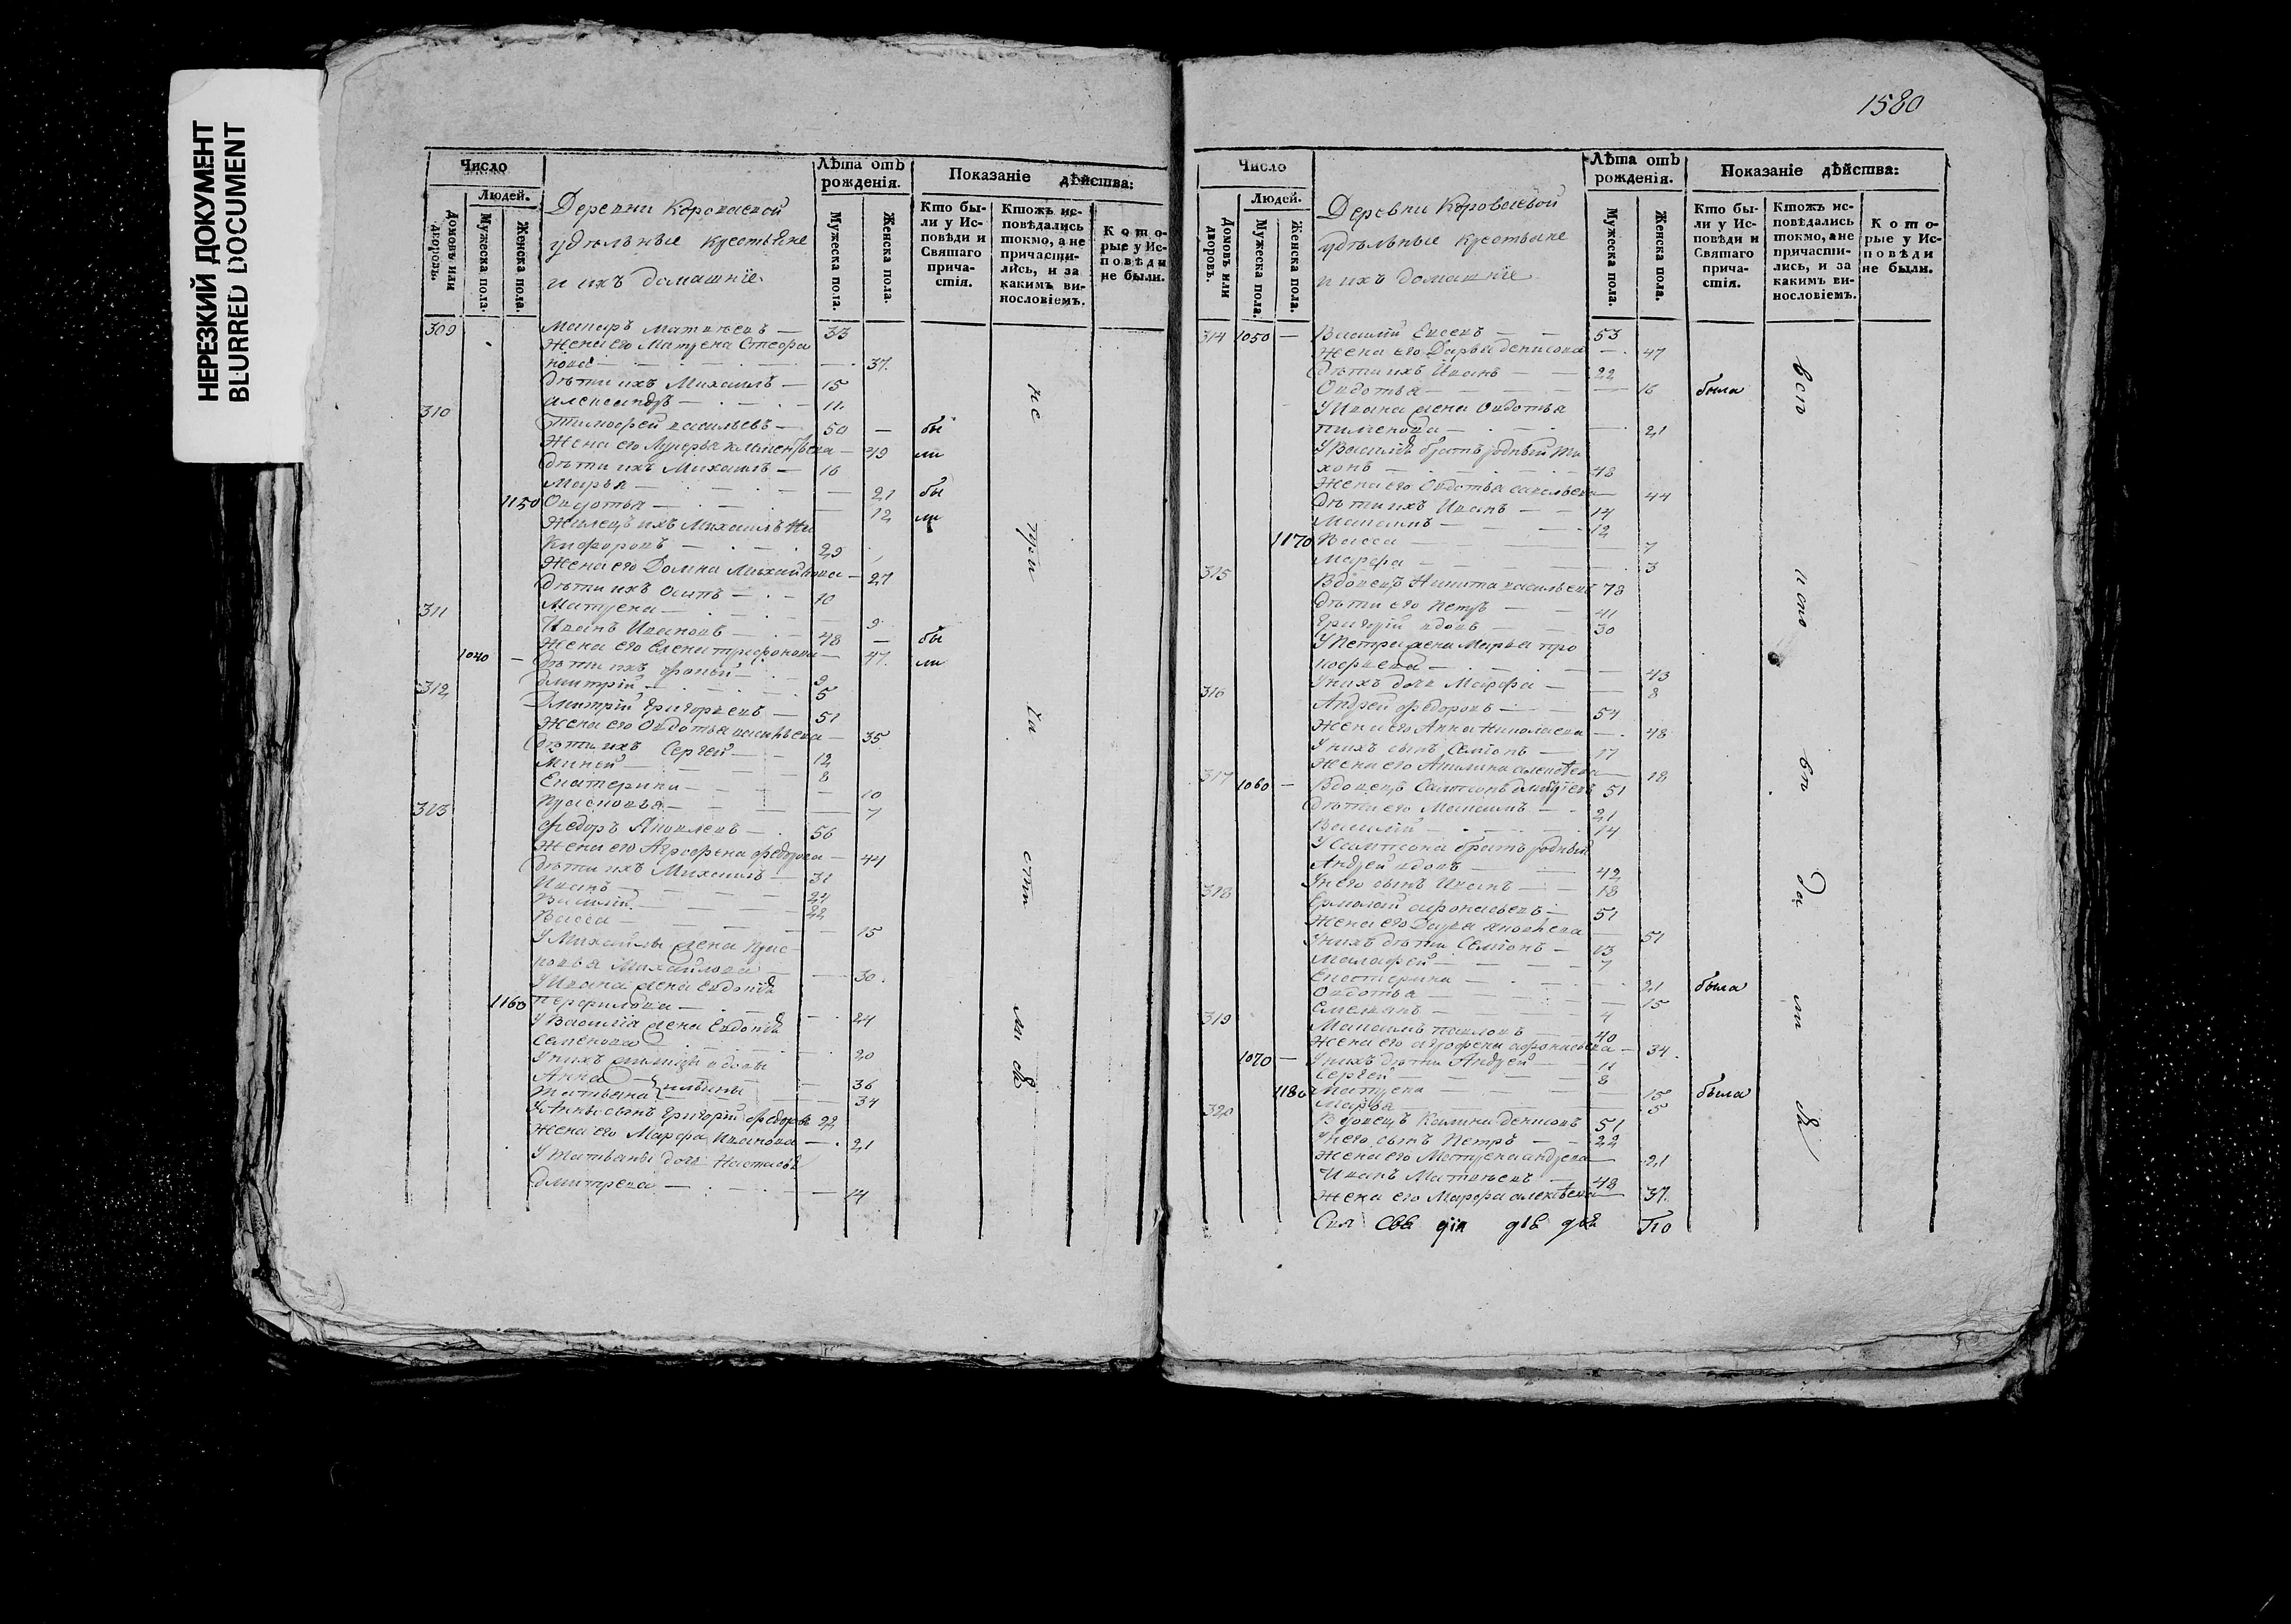 НЕРЕЗКИЙ ДОКУМЕНТ
BLURRED DOCUMENT
Число
Людей.
Домовъ или дворовъ.
Мужеска пола.
Женска пола.
Деревни Короваевой
удѣльные крестьяне
и ихъ домашніе
Лѣта отъ рожденія.
Мужеска пола.
Женска пола.
Показаніе дѣйства:
Кто бы-
ли у Ис-
повѣди и
Святаго
прича-
стія.
Ктожъ ис-
повѣдались
токмо, а не
причасти-
лись, и за
какимъ ви-
нословіемъ.
Кото-
рые у Ис-
повѣди
не были.
309 Макаръ Матвѣевъ — 33
Жена его Матрена Стефа
нова — 37
Дѣти ихъ Михаилъ — 15
Александръ — 11
310 Тимофей Васильевъ — 50 — бы
Жена его — 49 ли
Дѣти ихъ Михаилъ — 16
Марья — 21 бы
1150 Овдотья — 12 ли
Жилецъ ихъ Михаилъ Ни
кифоровъ — 29
Жена его Домна Михайлова — 27
Дѣти ихъ Осипъ — 10
Матрена — 9
311 Иванъ Ивановъ — 48 — бы
Жена его Елена Трифонова — 47 ли
1040 — Дѣти ихъ — 9
Дмитрій — 5
312 Дмитрій Григорьевъ — 51
Жена его Овдотья Васильева — 35
Дѣти ихъ Сергей — 12
Миней — 8
Екатерина — 10
Прасковья — 7
313 Федоръ Яковлевъ — 56
Жена его Агрофена Федорова — 44
Дѣти ихъ Михаилъ — 31
Иванъ — 24
Василій — 22
Васса — 15
У Михаилы жена Прас
ковья Михайлова — 30
У Ивана жена Евдокія
1160 Перфилова — 24
У Василія жена Евдокія
Семенова — 20
У нихъ вдовы
Анна — 36
Татьяна — 34
У Анны сынъ Григорій Федоровъ 22
Жена его Марфа Иванова — 21
У Татьяны дочь Настасья
Дмитрева — 14
не при ча сти ли сь
1580
Число
Людей.
Домовъ или дворовъ.
Мужеска пола.
Женска пола.
Деревни Короваевой
удѣльные крестьяне
и ихъ домашніе
Лѣта отъ рожденія.
Мужеска пола.
Женска пола.
Показаніе дѣйства:
Кто бы-
ли у Ис-
повѣди и
Святаго
прича-
стія.
Ктожъ ис-
повѣдались
токмо, а не
причасти-
лись, и за
какимъ ви-
нословіемъ.
Кото-
рые у Ис-
повѣди
не были.
314 1050 — Василій Евсевъ — 53
Жена его Дарья Денисова — 47
Дѣти ихъ Иванъ — 22
Овдотья — 16 была
У Ивана жена Овдотья
Пименова — 21
У Василія братъ родный Ти
хонъ — 48
Жена его Овдотья Савельева — 44
Дѣти ихъ Иванъ — 14
Максимъ — 12
1170 Васса — 7
Марфа — 3
315 Вдовецъ Никита Васильевъ 78
Дѣти его Петръ — 41
Григорій вдовъ — 30
У Петра жена Марья Про
кофьева — 43
У нихъ дочь Марфа — 8
316 Андрей Федоровъ — 54
Жена его Анна Николаева — 48
У нихъ сынъ Семіонъ — 17
Жена его Акилина Алексѣева — 18
317 1060 — Вдовецъ Самсонъ Дмитріевъ 51
Дѣти его Максимъ — 21
Василій — 14
У Самсона братъ родный
Андрей вдовъ — 42
У него сынъ Иванъ — 18
318 Ермолай Афонасьевъ — 51
Жена его Дарья Яковлева — 51
У нихъ дѣти Семіонъ — 13
Малафей — 7
Екатерина — 21 была
Овдотья — 15
4
319 Максимъ Павловъ — 40
Жена его Агрофена Афонасьева — 34
1070 — У нихъ дѣти Андрей — 11
Сергей — 8
1180 Матрена — 15 была
Марья — 5
320 Вдовецъ Калина Денисовъ 51
У него сынъ Петръ — 22
Жена его Матрена Андреева — 21
Иванъ Матвѣевъ — 48
Жена его Марфа Алексѣева — 37